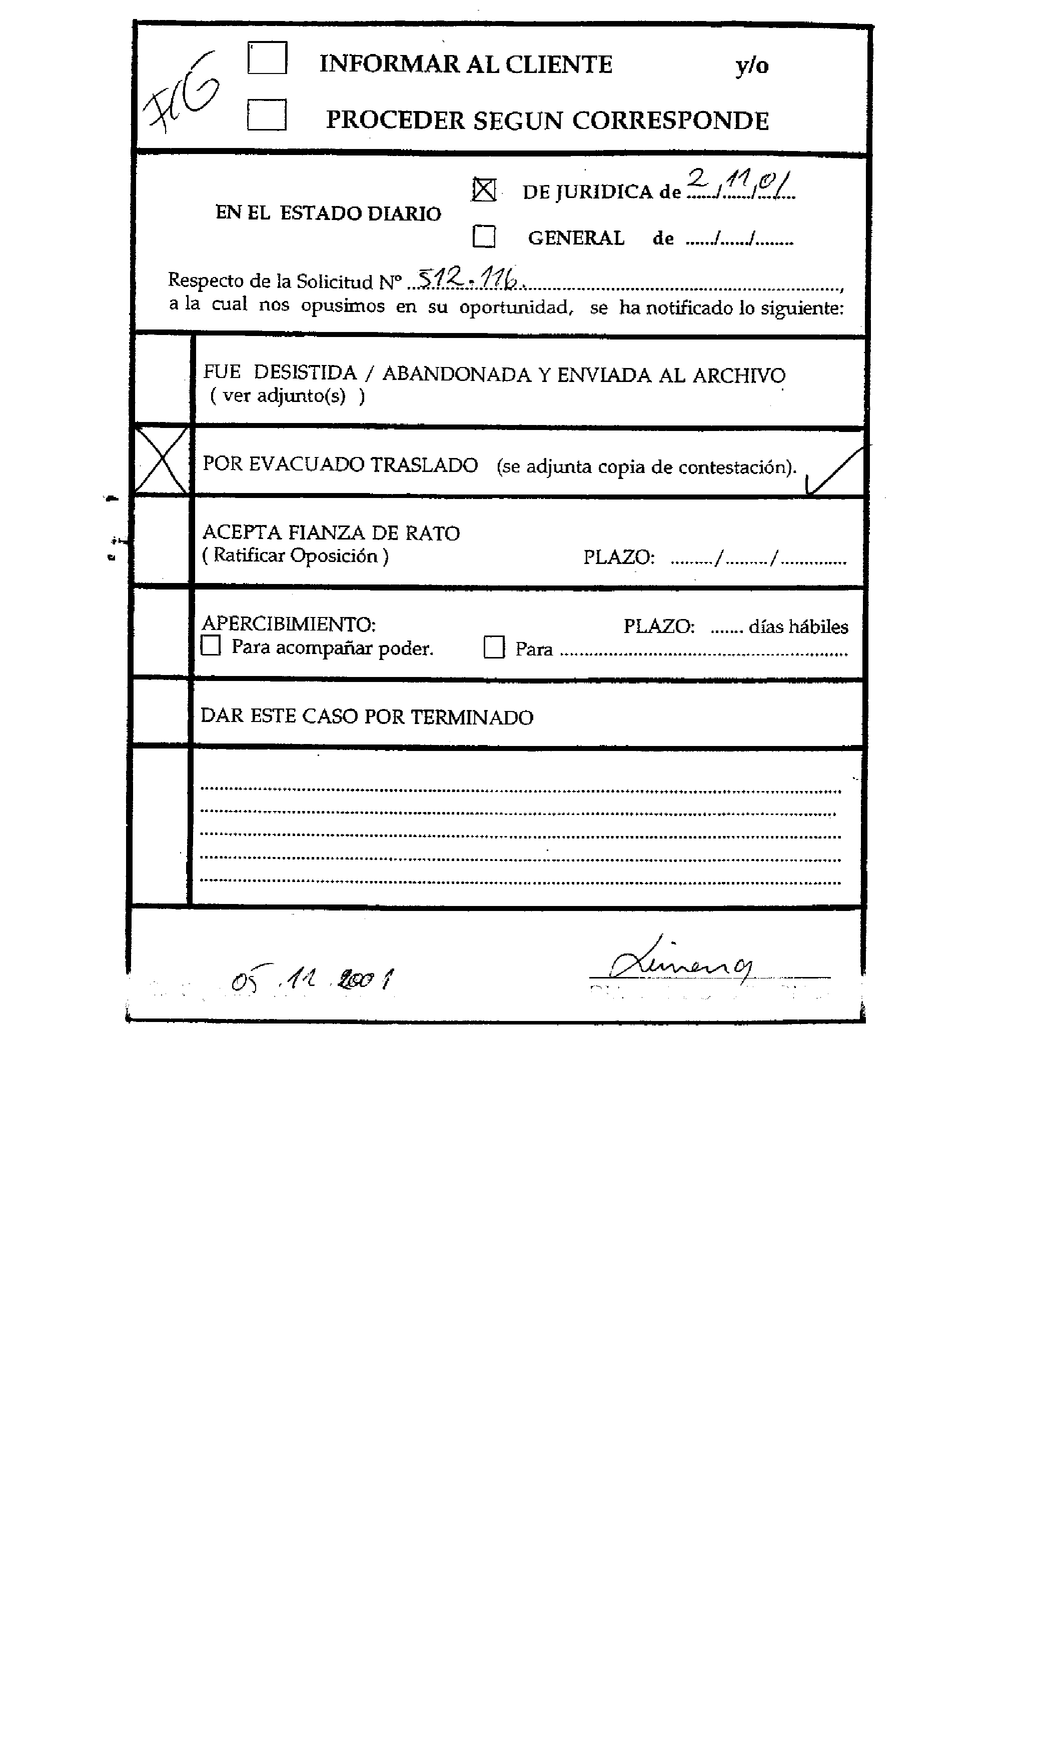 INFORMAR AL CLIENTE y/o
PROCEDER SEGUN CORRESPONDE
DE JURIDICA de 2/11/01
EN EL ESTADO DIARIO
GENERAL de ....../....../........
Respecto de la Solicitud Nº 512.116.,
a la cual nos opusimos en su oportunidad, se ha notificado lo siguiente:
FUE DESISTIDA / ABANDONADA Y ENVIADA AL ARCHIVO
( ver adjunto(s) )
POR EVACUADO TRASLADO (se adjunta copia de contestación).
ACEPTA FIANZA DE RATO
( Ratificar Oposición ) PLAZO: ........./........./..............
APERCIBIMIENTO: PLAZO: ....... días hábiles
Para acompañar poder. Para ..............................
DAR ESTE CASO POR TERMINADO
05.11.2001